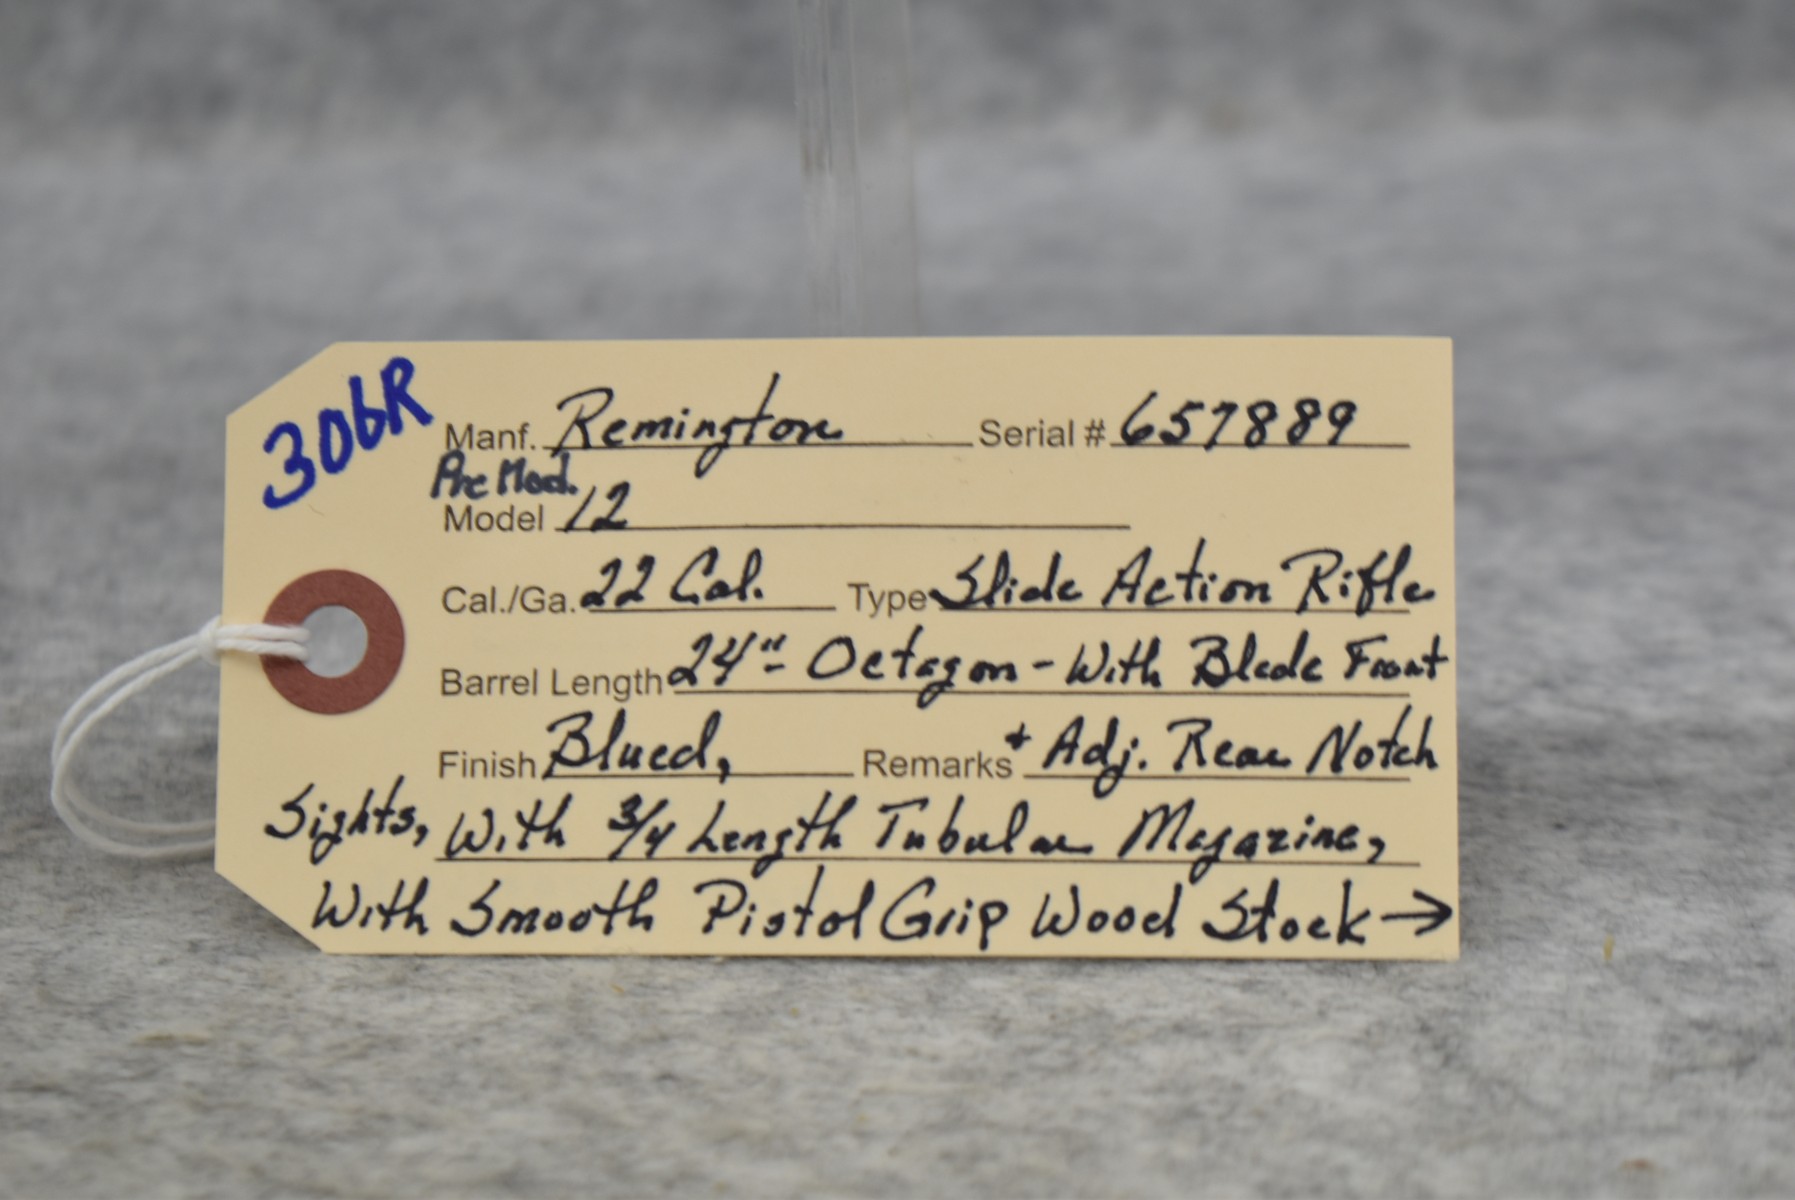 306R
Manf. Remington Serial # 657889
Pre Mod.
Model 12
Cal./Ga. 22 Cal. Type Slide Action Rifle
Barrel Length 24"- Octagon - With Blade Front
Finish Blued, Remarks + Adj. Rear Notch
Sights, With 3/4 Length Tubular Magazine,
With Smooth Pistol Grip Wood Stock →